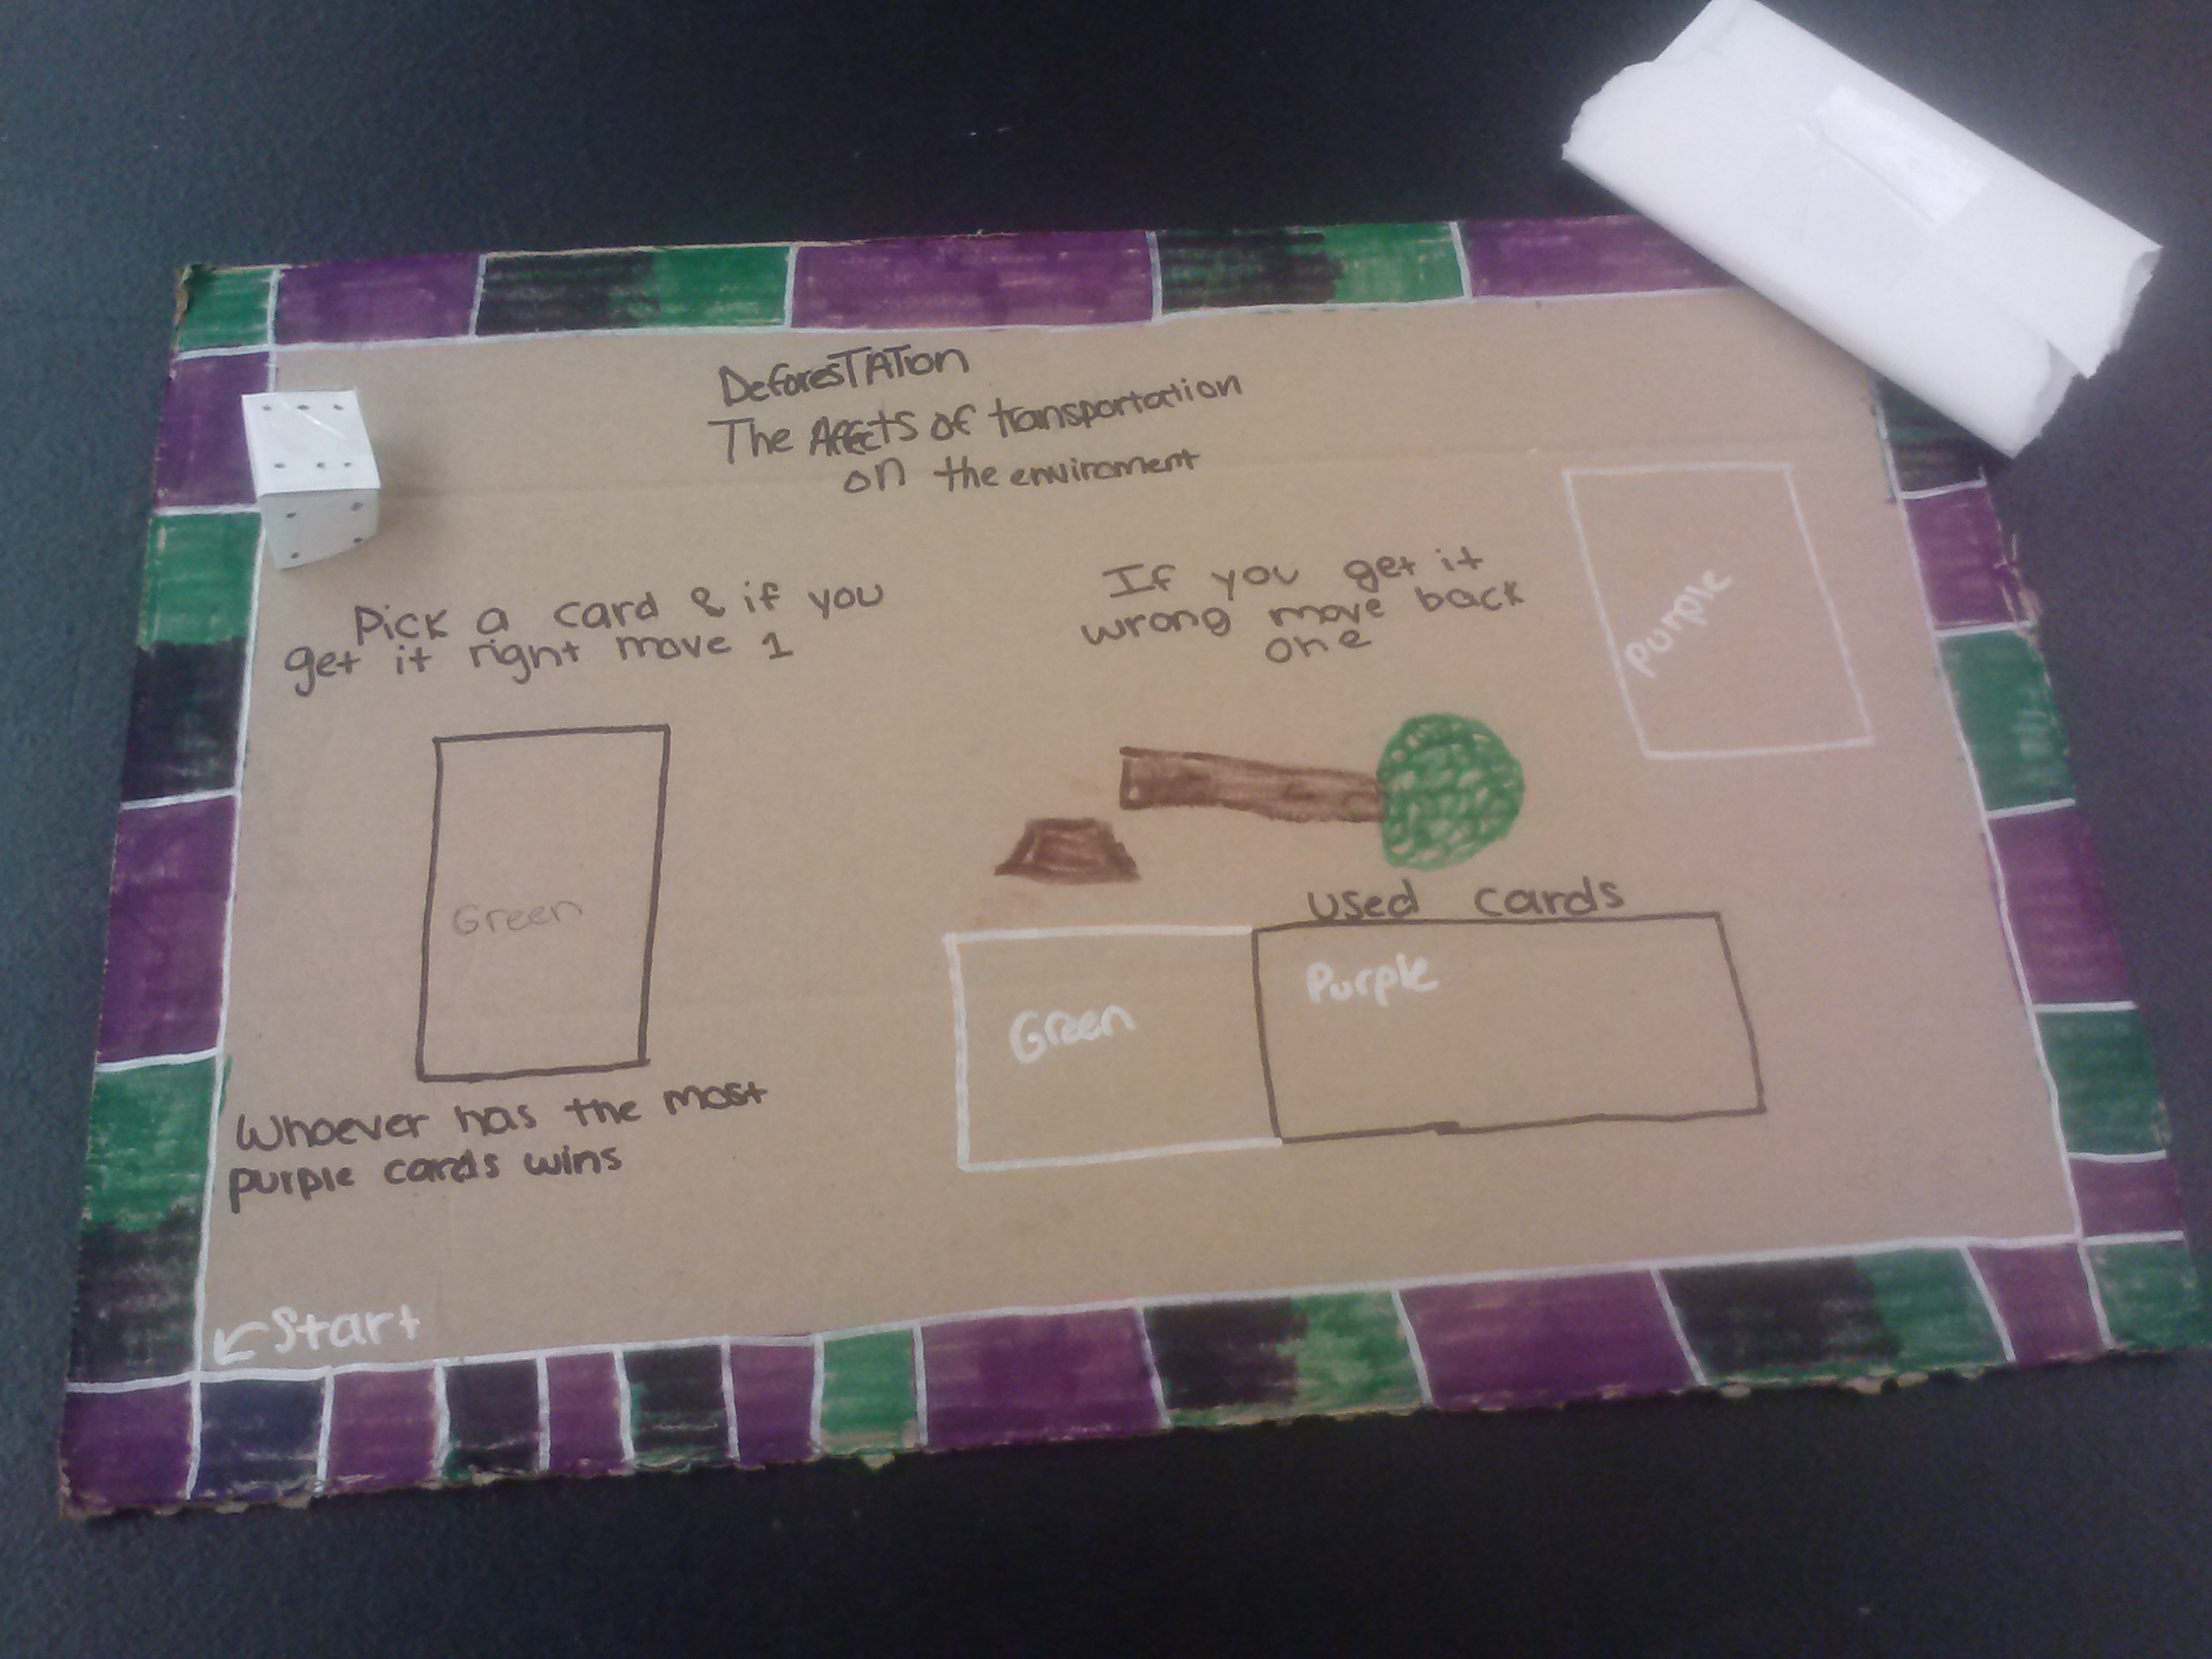 DeforesTATion
The Affects of transportation
on the enviroment
Pick a card & if you
get it right move 1
If you get it
wrong move back
one
Purple
Green
used cards
Green
Purple
Whoever has the most
purple cards wins
Start